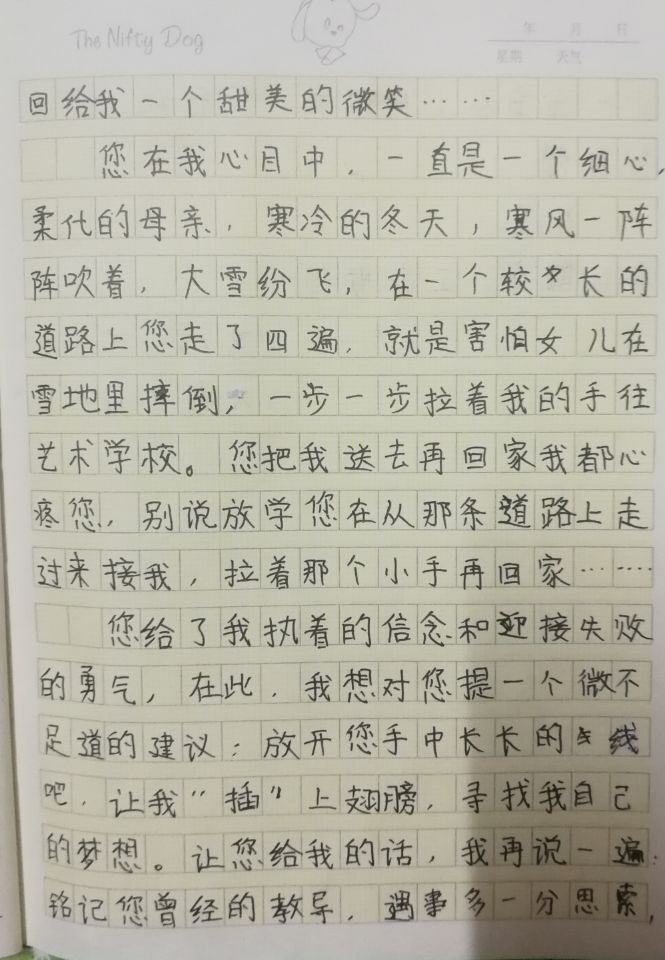 The Nifty Dog
年 月 日
星期 天气
回给我一个甜美的微笑……
您在我心目中，一直是一个细心，
柔代的母亲，寒冷的冬天，寒风一阵
阵吹着，大雪纷飞，在一个较长的
道路上您走了四遍，就是害怕女儿在
雪地里摔倒，一步一步拉着我的手往
艺术学校。您把我送去再回家我都心
疼您，别说放学您在从那条道路上走
过来接我，拉着那个小手再回家……
您给了我执着的信念和迎接失败
的勇气，在此，我想对您提一个微不
足道的建议：放开您手中长长的线
吧，让我“插”上翅膀，寻找我自己
的梦想。让您给我的话，我再说一遍：
铭记您曾经的教导，遇事多一分思索，